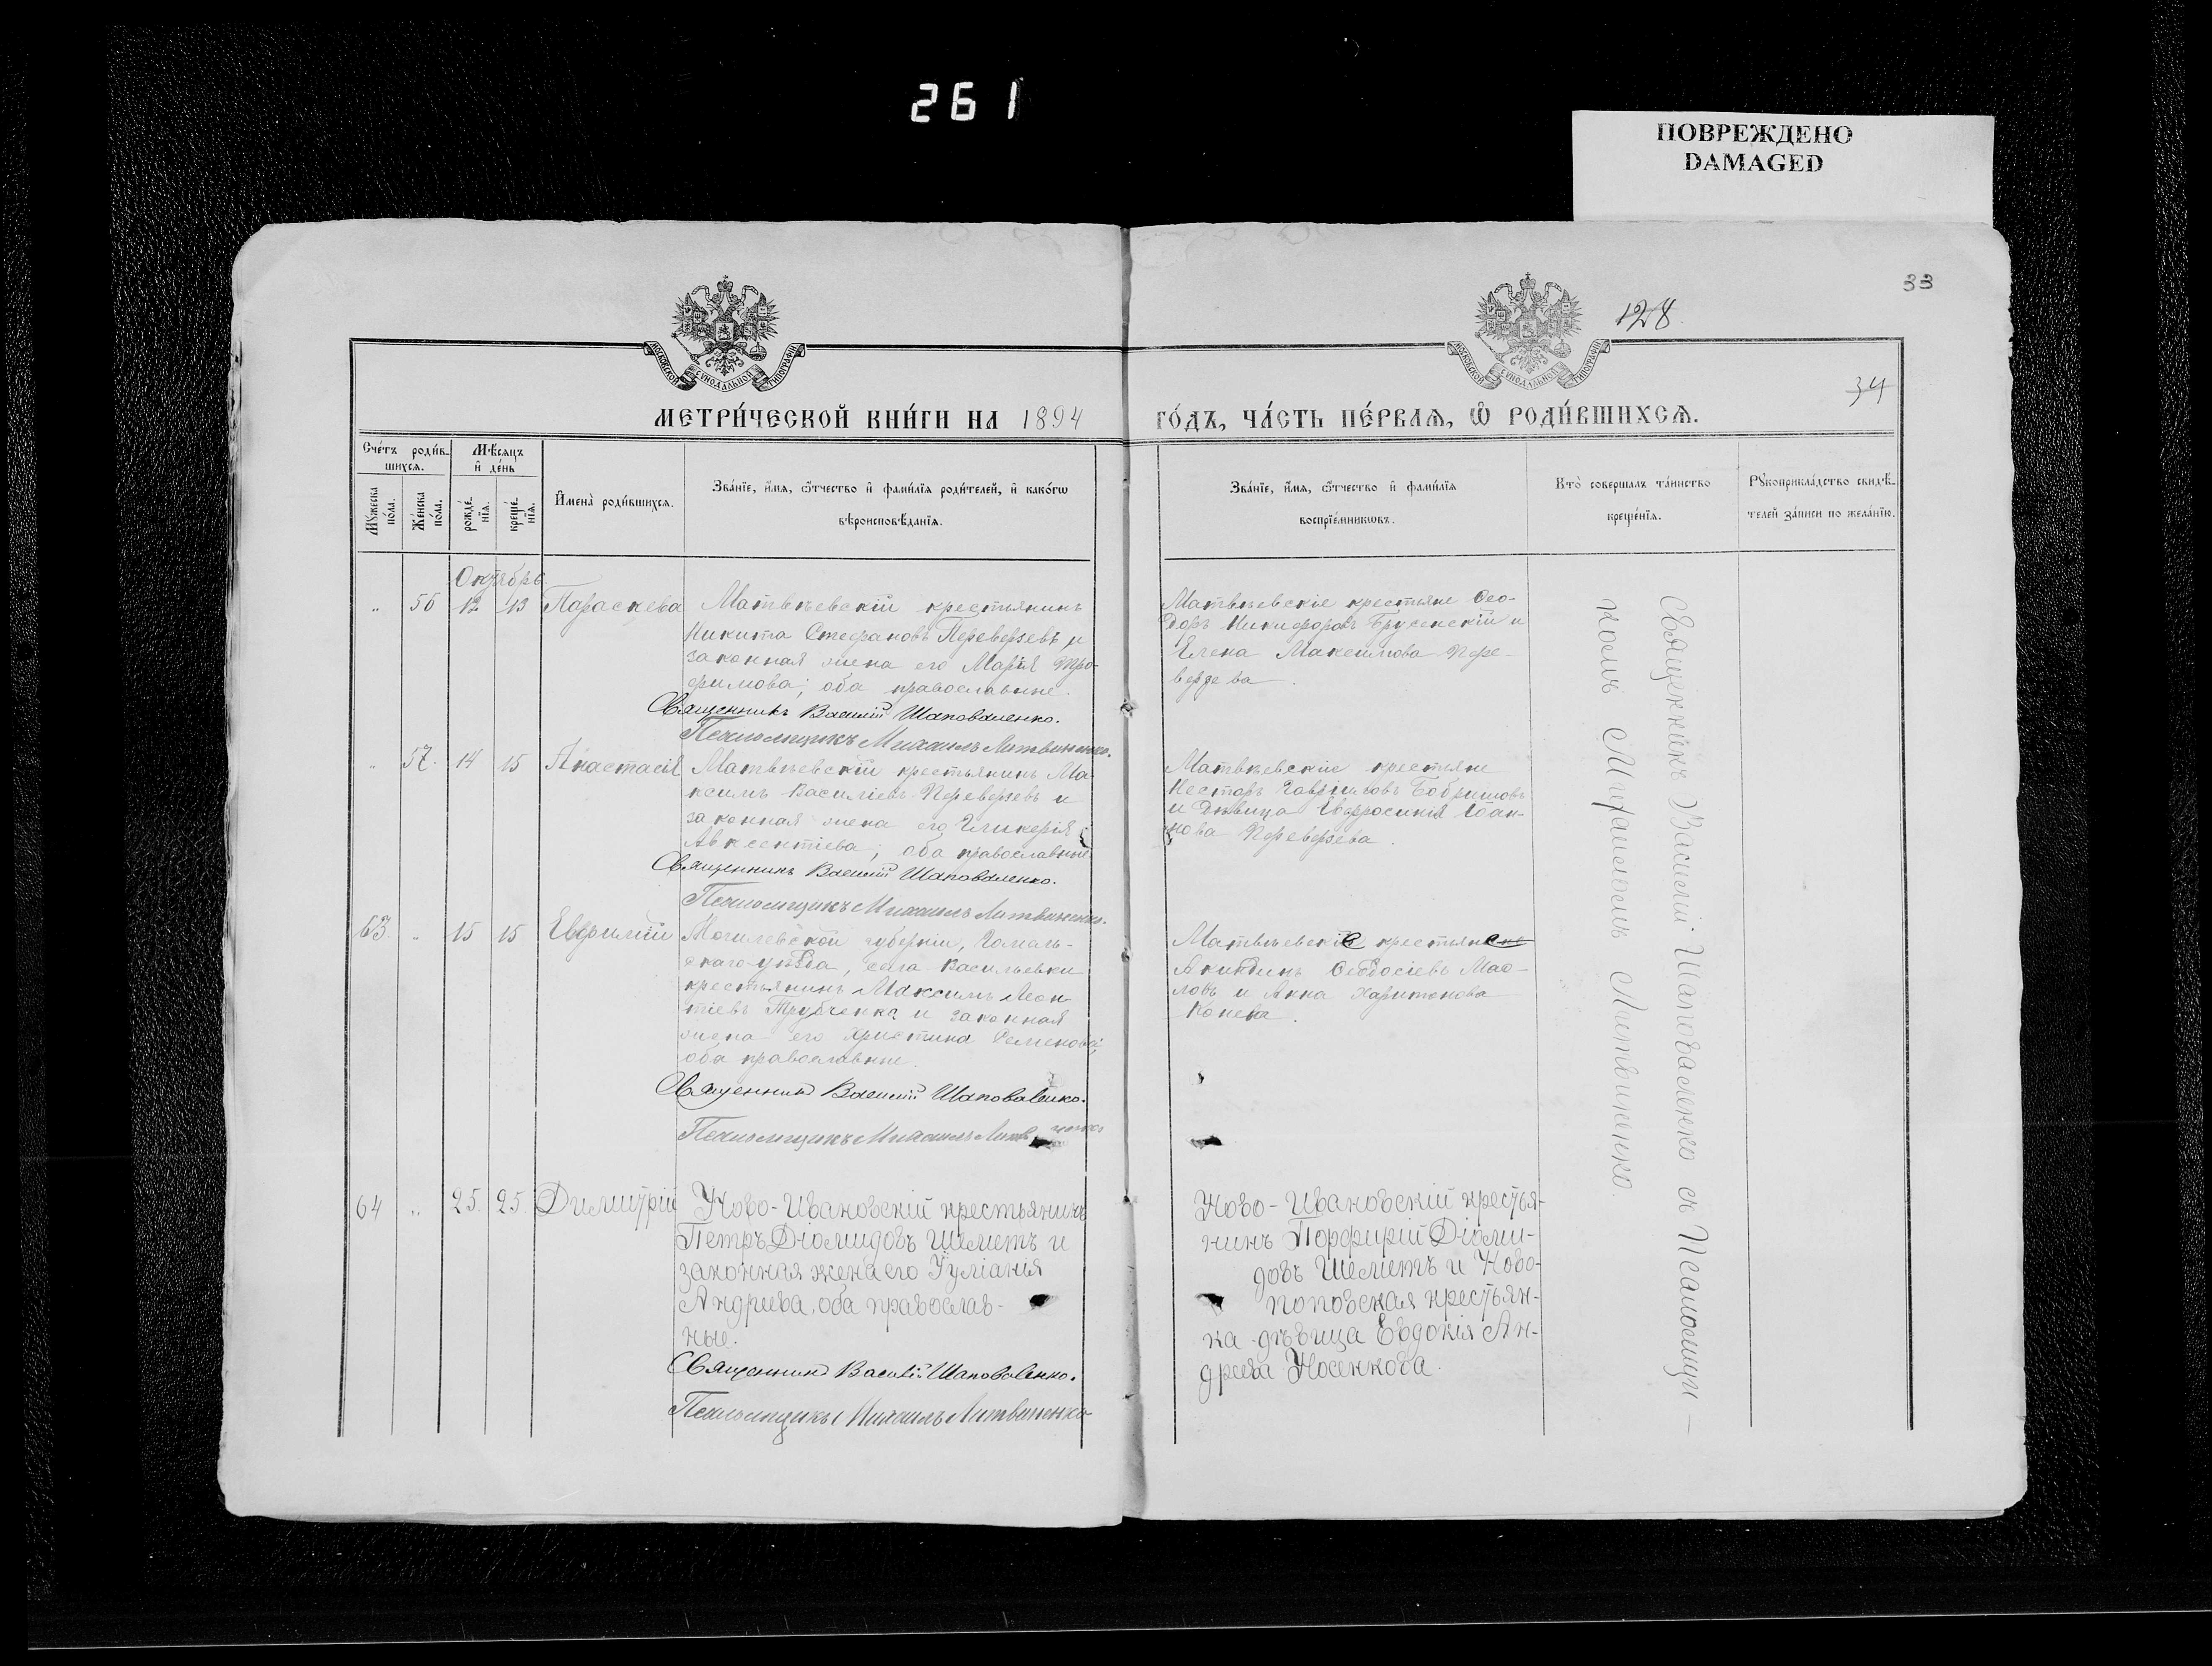 261
ПОВРЕЖДЕНО
DAMAGED
33
128.
34
МОСКОВСКОЙ СѴНОДАЛЬНОЙ ТИПОГРАФІИ
МОСКОВСКОЙ СѴНОДАЛЬНОЙ ТИПОГРАФІИ
МЕТРИ́ЧЕСКОЙ КНИ́ГИ НА 1894 ГО́ДЪ, ЧА́СТЬ ПЕ́РВАѦ, Ѿ РОДИ́ВШИХСѦ.
Сче́тъ роди́в-
шихсѧ.
Мꙋжеска по́ла.
Же́нска по́ла.
Мѣ́сѧцъ
и҆ де́нь
рожде́-
нїѧ.
креще́-
нїѧ.
И҆мена̀ роди́вшихсѧ.
Зва́нїе, и҆́мѧ, ѻ҆́тчество и҆ фами́лїѧ роди́телей, и҆ како́гѡ
вѣроисповѣ́данїѧ.
Зва́нїе, и҆́мѧ, ѻ҆́тчество и҆ фами́лїѧ
воспрїе́мникѡвъ.
Кто̀ соверша́лъ та́инство
креще́нїѧ.
Рꙋкоприкла́дство свидѣ́-
телей за́писи по жела́нїю.
Октябрь
„ 56 12 13 Параскева
Матвѣевскій крестьянинъ
Никита Стефановъ Переверзевъ и
законная жена его Марія Тро-
фимова; оба православные.
Священникъ Василій Шаповаленко.
Псаломщикъ Михаилъ Литвиненко.
Матвѣевскіе крестьяне Ѳео-
доръ Никифоровъ Брусенскій и
Елена Максимова Пере-
верзева.
„ 57. 14 15 Анастасія
Матвѣевскій крестьянинъ Ма-
ксимъ Василіевъ Переверзевъ и
законная жена его Гликерія
Авксентіева; оба православные
Священникъ Василій Шаповаленко.
Псаломщикъ Михаилъ Литвиненко.
Матвѣевскіе крестьяне
Несторъ Гавріиловъ Бобришовъ
и дѣвица Евфросинія Іоан-
нова Переверзева.
63. „ 15 15 Евфимій
Могилевской губерніи, Гомель-
скаго уѣзда, села Васильевки
крестьянинъ Максимъ Леон-
тіевъ Трубченко и законная
жена его Христина Семенова;
оба православные.
Священникъ Василій Шаповаленко.
Псаломщикъ Михаилъ Литвиненко
Матвѣевскіе крестьяне
Акиндинъ Ѳеодосіевъ Мас-
ловъ и Анна Харитонова
Конева.
64 „ 25. 25. Димитрій
Ново-Ивановскій крестьянинъ
Петръ Діомидовъ Шелистъ и
законная жена его Іуліанія
Андреева, оба православ-
ные.
Священникъ Василій Шаповаленко.
Псаломщикъ Михаилъ Литвиненко
Ново-Ивановскій крестья-
нинъ Порфирій Діоми-
довъ Шелистъ и Ново-
поповская крестьян-
ка дѣвица Евдокія Ан-
дреева Носенкова.
Священникъ Василій Шаповаленко съ Псаломщи-
комъ Михаиломъ Литвиненко.